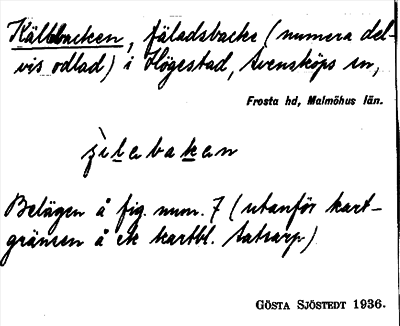 Källbacken, fäladsbacke (numera del-
vis odlad) i Högestad, Svensköps sn,
Frosta hd, Malmöhus län.
Belägen å fig. num. 7 (utanför kart-
gränsen å ek kartbl. Satsarp)
GÖSTA SJÖSTEDT 1936.